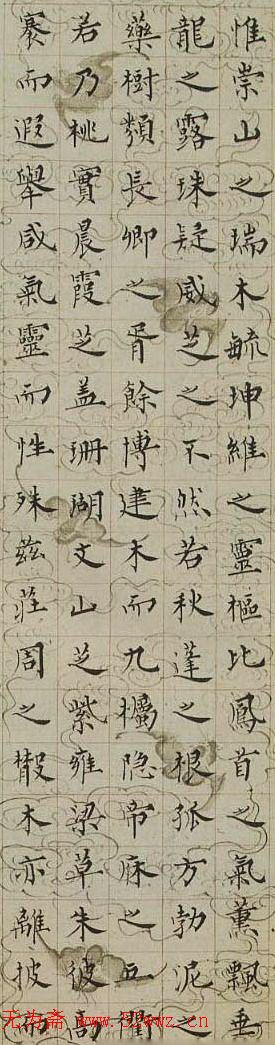 惟崇山之瑞木毓坤維之靈樞比鳳首之氣薰飄垂
龍之露珠疑威芝之不然若秋蓬之根孤方勃泥之
藥樹類長卿之胥餘博建木而九欘隐帝庥之五衢
若乃桃實晨霞芝盖珊瑚文山芝紫雍梁草朱彼高
褰而遐舉咸氣靈而性殊兹莊周之散木亦離披而
无为斋 www.5wwz.cn